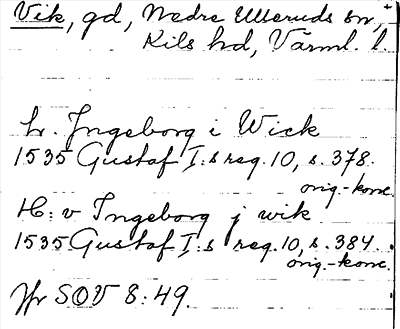 Vik, gd, Nedre Ulleruds sn,
Kils hd, Värml. l.
hr. Jngeborg i Wick
1535 Gustaf I:s reg. 10, s. 378.
orig.-konc.
H: v Jngeborg j wik
1535 Gustaf I:s reg. 10, s. 384.
orig.-konc.
Jfr SOV 8:49.